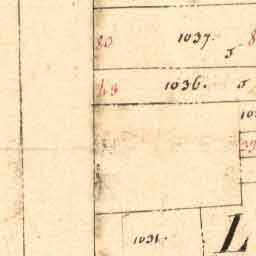 80 1037. 5
43 1036. 5
1031.
L